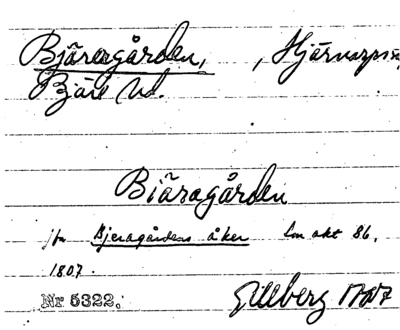 Bjäragården, , Hjärnarps sn,
Bjäre hd.
Biäragården
jfr Bjeragårdens åker Lm akt 86,
1807.
Nr 5322. Gillberg 1767